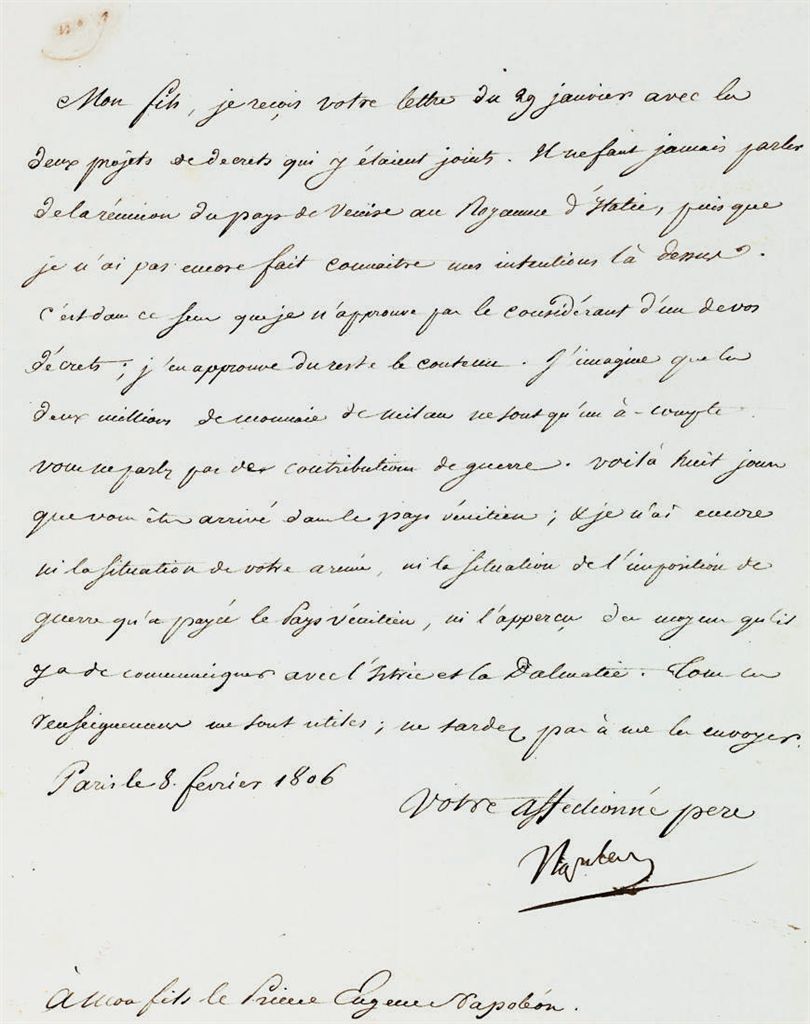 Mon fils, je reçois votre lettre du 29 janvier avec les
deux projets de decrets qui y étaient joints. Il ne faut jamais parler
de la réunion du pays de Venise au Royaume d'Italie, puis que
je n'ai pas encore fait connaitre mes intentions là dessus.
c'est dans ce sens que je n'approuve pas le considérant d'un de vos
décrets; j'en approuve du reste le contenu. J'imagine que les
deux millions de monnaie de milan ne sont qu'un à-compte.
vous ne parlez pas des contributions de guerre. voilà huit jours
que vous êtes arrivé dans le pays vénitien; & je n'ai encore
ni la situation de votre armée, ni la situation de l'imposition de
guerre qu'a payée le Pays vénitien, ni l'apperçu des moyens qu'il
y a de communiquer avec l'Istrie et la Dalmatie. Tous ces
renseignemens me sont utiles; ne tardez pas à me les envoyer.
Paris le 8. fevrier 1806
Votre affectionné pere
Napoleon
À Mon fils le Prince Eugene Napoléon.